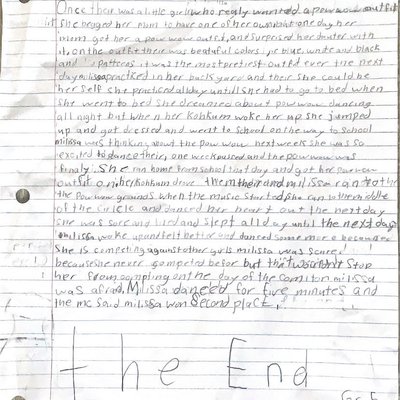 Once ther was a little girl who realy wanted a pow wow outfit
she begged her mom to have one of her own but one day her
mom got her a pow wow outfit, and surprised her dauter with
it, on the outfit their was beatuful colors, blue, white and black
and patterns it was the most pretiest outfit ever the next
day milissa practiced in her back yard and their she could be
her self she practiced all day untill she had to go to bed when
she went to bed she dreamed about pow wow dancing
all night but when her Kohkum woke her up she jumped
up and got dressed and went to school on the way to school
milissa was thinking about the pow wow next week she was so
excited to dance their, one week passed and the pow wow was
finaly. She ran home from school that day and got her pow wow
outfit on, her Kohkum drove them their and milissa ran to the
the pow wow grounds when the music started she ran to the middle
of the circle and danced her heart out the next day
she was sore and tierd and slept all day until the next day
milissa woke up and felt better and danced some more because
She is competing against other girls milissa was scared
because she never competed befor but that wouldn't stop
her from compting on the day of the comption milissa
was afraid, Milissa danced for five minutes and
the mc said milissa won second place.
the End
Gr. 5